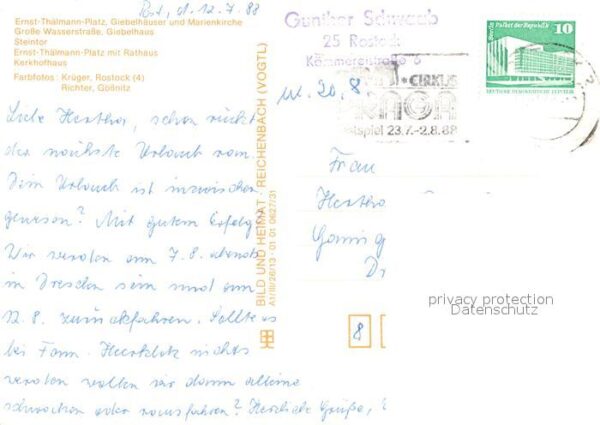 Rost., d. 12.7.88
Ernst-Thälmann-Platz, Giebelhäuser und Marienkirche
Große Wasserstraße, Giebelhaus
Steintor
Ernst-Thälmann-Platz mit Rathaus
Kerkhofhaus
Farbfotos: Krüger, Rostock (4)
Richter, Gößnitz
Liebe Hertha, schon rückt
der nächste Urlaub ran.
Dein Urlaub ist inzwischen
gewesen? Mit gutem Erfolg?
Wir werden am 7.8. abends
in Dresden sein und am
12.8. zurückfahren. Sollte es
bei Fam. nichts
werden wollen wir dann alleine
oder rausfahren? Herzliche Grüße,
BILD UND HEIMAT REICHENBACH (VOGTL)
A1/III/26/13 01 01 0627/31
Günther Schwaab
25 Rostock
Kämmereistraße 6
CIRKUS
spiel 23.7.-2.8.88
Berlin, Palast der Republik
10
DEUTSCHE DEMOKRATISCHE REPUBLIK
Frau
Hertha
8
privacy protection
Datenschutz